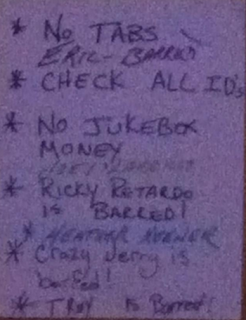 * NO TABS
ERIC - BARRED
* CHECK ALL ID's
* NO JUKEBOX
MONEY
* RICKY RETARDO
is BARRED!
* HEATHER
* Crazy Jerry is
barred!
* TROY is Barred!